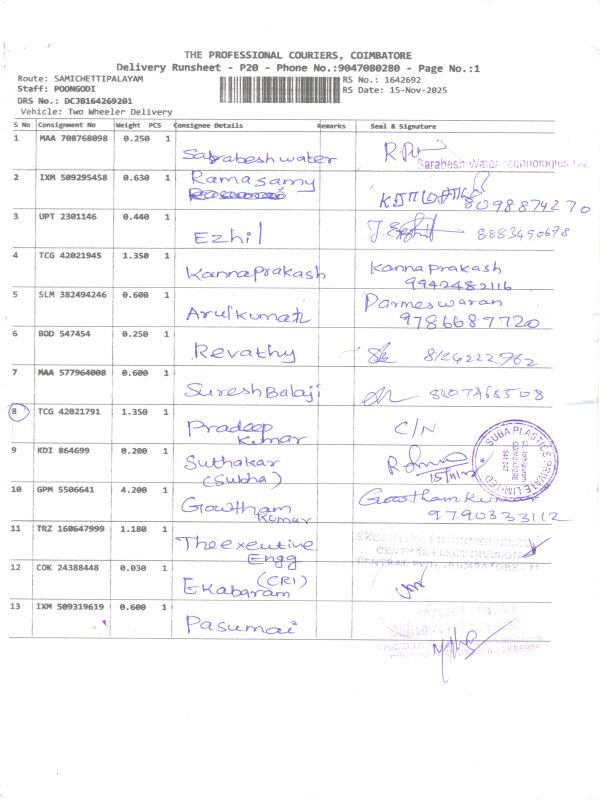 THE PROFESSIONAL COURIERS, COIMBATORE
Delivery Runsheet - P20 - Phone No.:9047080280 - Page No.:1
Route: SAMICHETTIPALAYAM RS No.: 1642692
Staff: POONGODI RS Date: 15-Nov-2025
DRS No.: DCJB164269201
Vehicle: Two Wheeler Delivery
S No Consignment No Weight PCS Consignee Details Remarks Seal & Signature
1 MAA 708768098 0.250 1 Sabrabesh water
Sarabesh Water Technologies
2 IXM 509295458 0.630 1 Ramasamy
8098874270
3 UPT 2301146 0.440 1 Ezhil 8883490678
4 TCG 42021945 1.350 1 Kannaprakash Kannaprakash
9942482116
5 SLM 382494246 0.600 1 Arulkumar Parmeswaran
9786687720
6 BOD 547454 0.250 1 Revathy 8124222962
7 MAA 577964008 0.600 1 SureshBalaji
8 TCG 42021791 1.350 1 Pradeep C/N
Kumar
9 KDI 864699 0.200 1 Suthakar
(Subha)
SUBA PLASTICS PRIVATE LIMITED
10 GPM 5506641 4.200 1 Gowtham Gowthamkumar
Kumar 9790333112
11 TRZ 160647999 1.180 1 Theexeutive
Engg
CENTRAL ELECT DIVISION
12 COK 24388448 0.030 1 (CRI)
Ekabaram
13 IXM 509319619 0.600 1 Pasumai